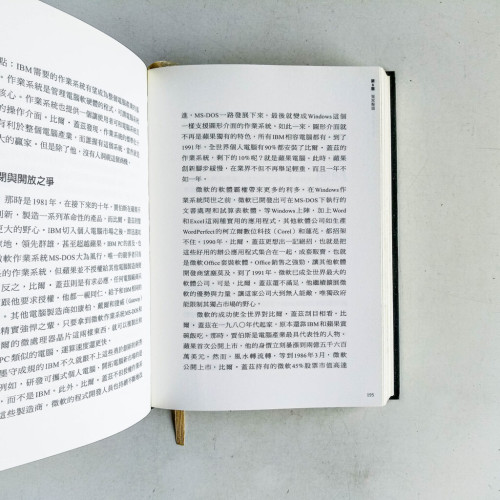 點：IBM需要的作業系統有望成為個
作業系統是管理電腦軟硬體的程式，可
核心。作業系統也提供一個讓使用者
的操作介面。比爾．蓋茲發現，
有利於整個電腦產業，而誰
大的贏家。但是除了他，沒有人
閉與開放之爭
那時是1981年，在接下來的十年，
創新，製造一系列革命性的產品。而比爾．
更大的野心。IBM切入個人電腦市場之
軟作業系統MS-DOS大為風行，
系統，但蘋果並不授權給其他
反之，比爾．蓋茲則是有求必應，
跟他要求授權，他都一視同仁，給予
其他電腦製造商如康柏、戴爾和捷威（Gateway）
精實強悍之輩，只要拿到微軟作業系統
的微處理器晶片這兩樣東西，就可以
PC類似的電腦，運算速度還更快。
墨守成規的IBM不久就跟不上這些
例如，研發可攜式個人電腦
而不是IBM。此外，比爾．蓋茲不但授權給
這些製造商，微軟的程式開發人員也持續不
進，MS-DOS一路發展下來，最後就變成Windows這個
一樣支援圖形介面的作業系統。如此一來，圖形介面就
不再是蘋果獨有的特色，所有IBM相容電腦都有。到了
1991年，全世界個人電腦有90%都安裝了比爾．蓋茲的
作業系統，剩下的10%呢？就是蘋果電腦。此時，蘋果
創新腳步緩慢，在業界不但不再舉足輕重，而且一年不
如一年。
微軟的軟體霸權帶來更多的利多。在Windows作
業系統問世之前，微軟已開發出可在MS-DOS下執行的
文書處理和試算表軟體。等Windows上陣，加上Word
和Excel這兩種實用的應用程式，其他軟體公司如生產
WordPerfect的柯立爾數位科技（Corel）和蓮花，都招架
不住。1990年，比爾．蓋茲更想出一記絕招，也就是把
這些好用的辦公應用程式集合在一起，成套販賣，也就
是微軟Office套裝軟體。Office銷售之強勁，讓其他軟體
開發商望塵莫及，到了1991年，微軟已成全世界最大的
軟體公司。可是，比爾．蓋茲還不滿意，他繼續擴張微
軟的優勢與力量，讓這家公司大到無人能敵，唯獨政府
能限制其獨占市場的野心。
微軟的成功使全世界對比爾．蓋茲另眼相看。比爾．
蓋茲在一九八〇年代起家，原本還靠IBM和蘋果賞
碗飯吃。那時，賈伯斯是電腦產業最具代表性的人物。
蘋果首次公開上市，他的身價立刻暴漲到兩億五千六百
萬美元。然而，風水輪流轉，等到1986年3月，微軟
公開上市，比爾．蓋茲持有的微軟45%股票市值高達